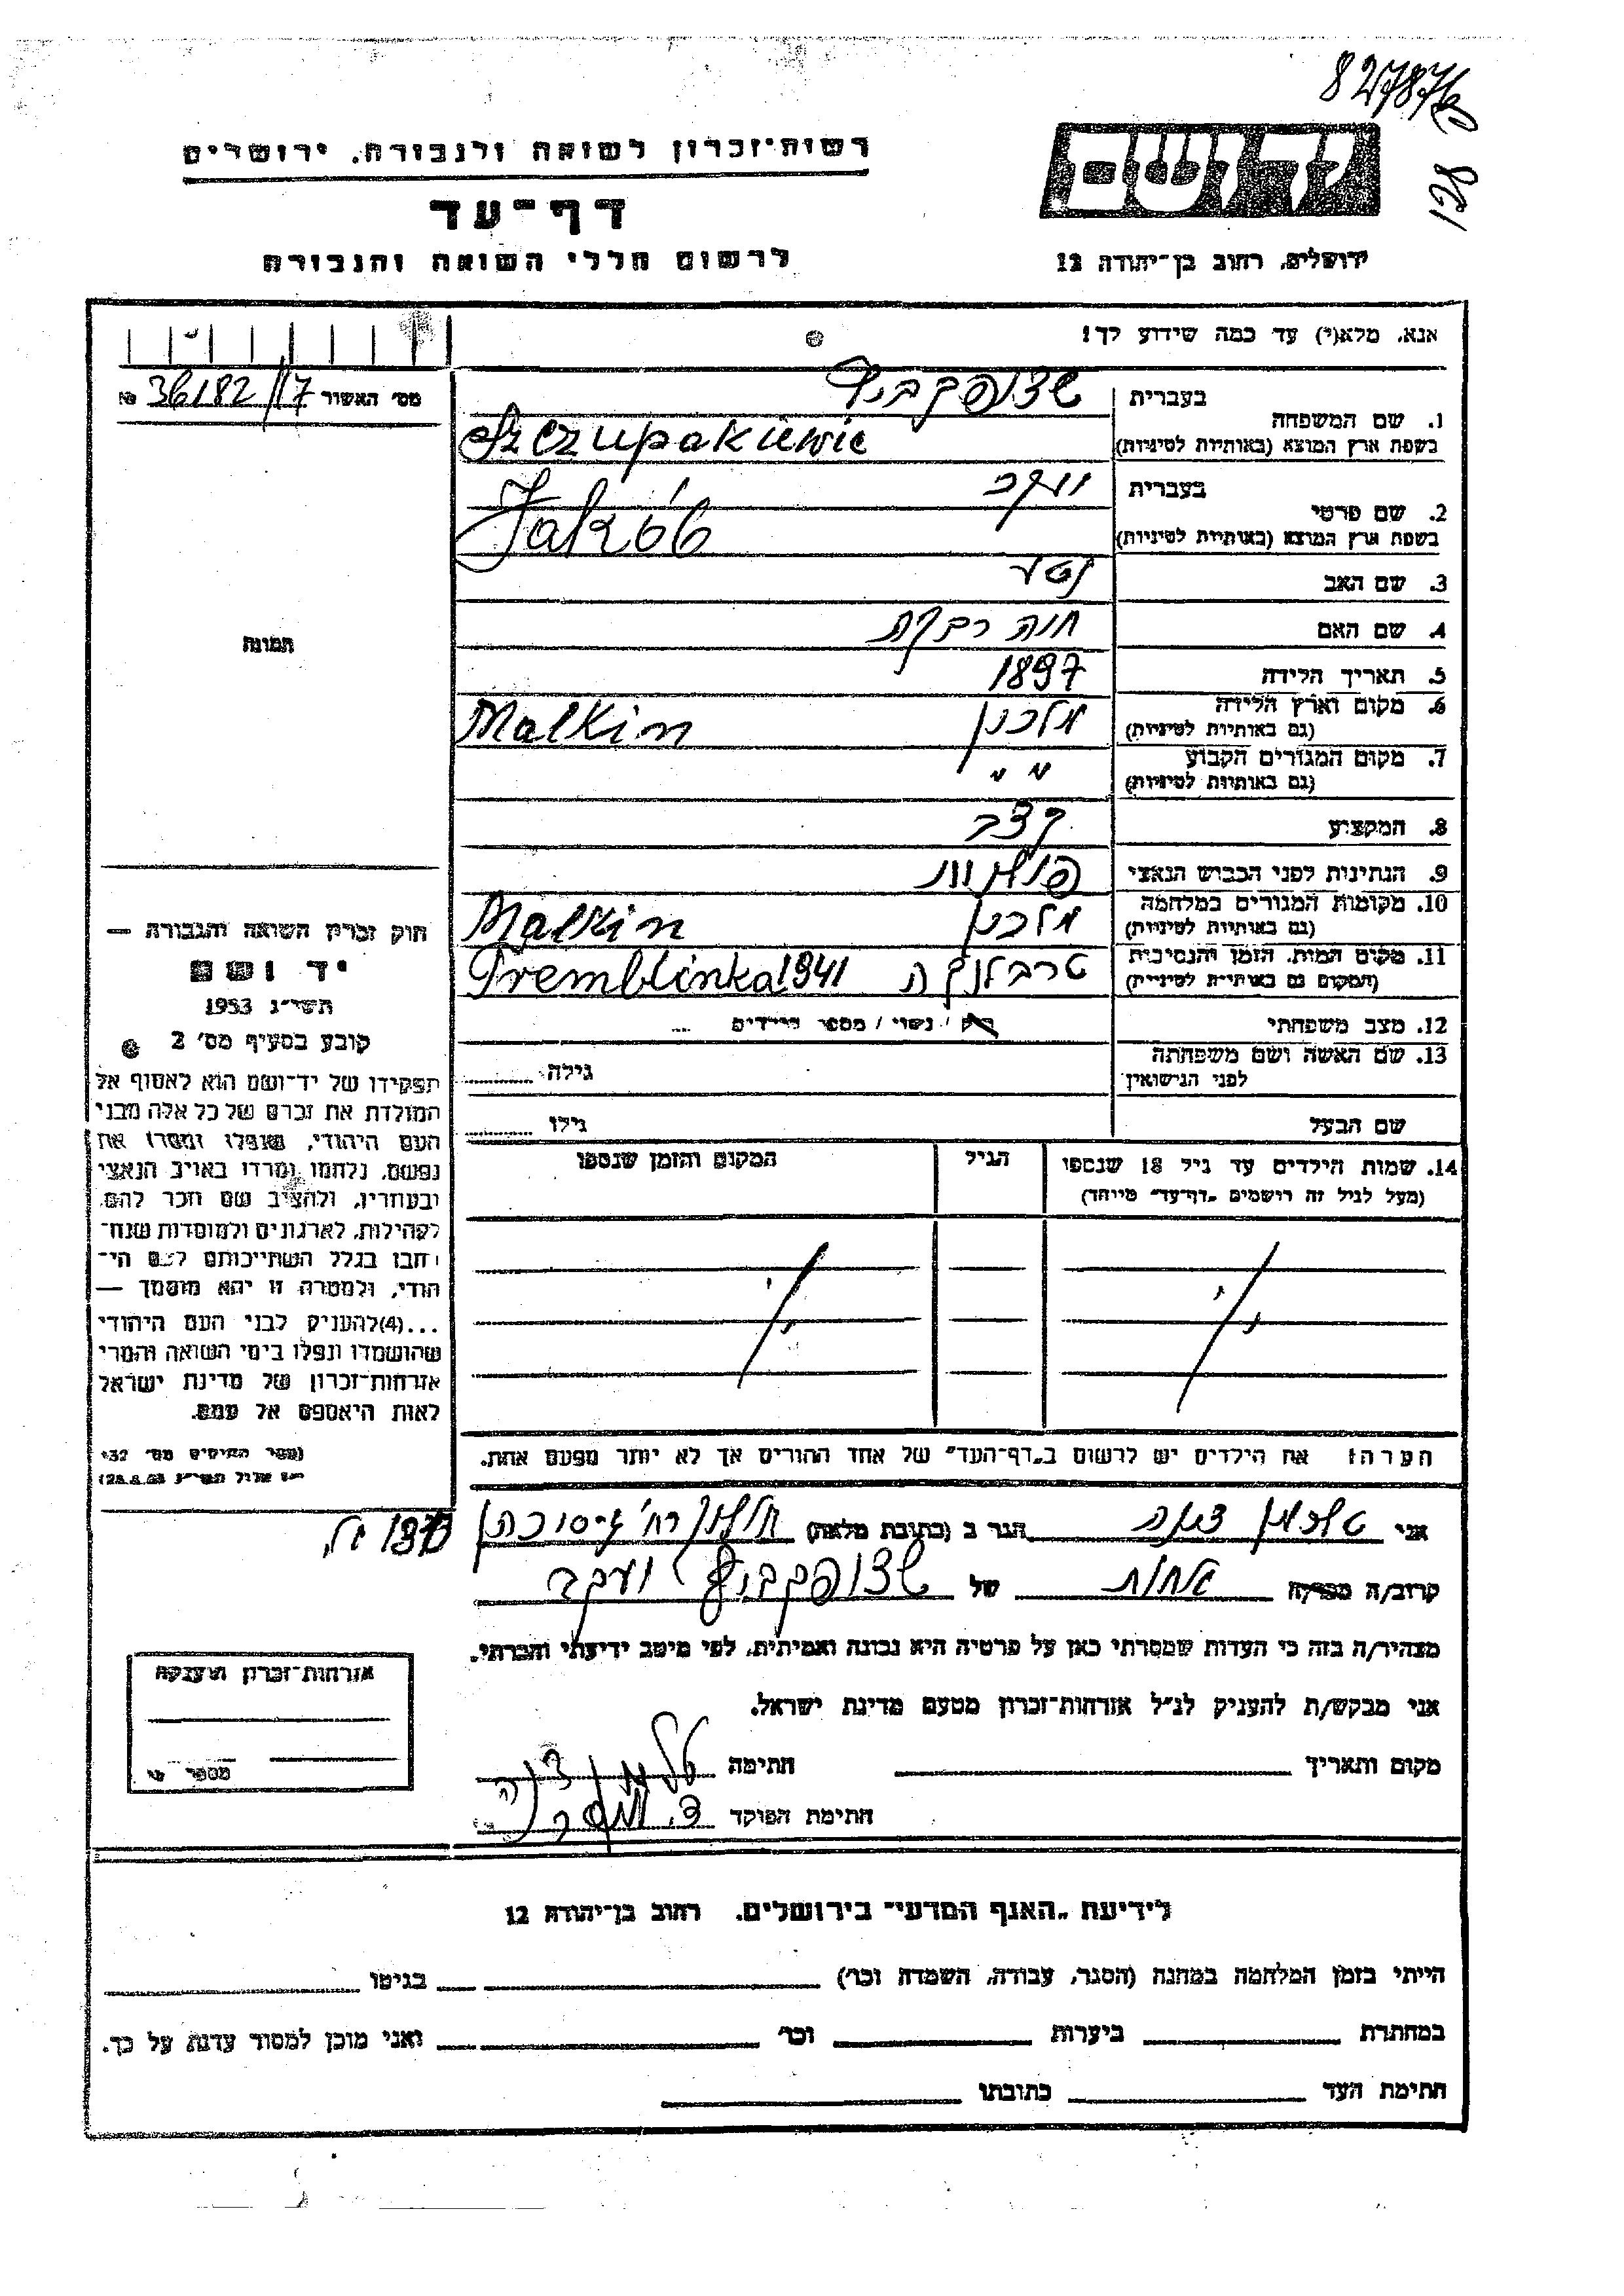 827876
138
רשות־זכרון לשואה ולגבורה, ירושלים
דף־עד
לרשום חללי השואה והגבורה
יד ושם
ירושלים, רחוב בן־יהודה 12
אנא, מלא(י) עד כמה שידוע לך!
מס׳ האשור 36182/17 №
1. שם המשפחה
בעברית שצופקביץ
בשפת ארץ המוצא (באותיות לטיניות) Szczupakiewic
2. שם פרטי
בעברית יעקב
בשפת ארץ המוצא (באותיות לטיניות) Jakób
3. שם האב
4. שם האם חוה רבקה
5. תאריך הלידה 1897
6. מקום וארץ הלידה מלכין Malkin
(גם באותיות לטיניות)
7. מקום המגורים הקבוע " "
(גם באותיות לטיניות)
8. המקצוע קצב
9. הנתינות לפני הכבוש הנאצי פולנית
10. מקומות המגורים במלחמה מלכין Malkin
(גם באותיות לטיניות)
11. מקום המות, הזמן והנסיבות טרבלינקה Tremblinka 1941
(המקום גם באותיות לטיניות)
12. מצב משפחתי רווק / נשוי / מספר הילדים ...
13. שם האשה ושם משפחתה גילה
לפני הנישואין
שם הבעל גילו
14. שמות הילדים עד גיל 18 שנספו הגיל המקום והזמן שנספו
(מעל לגיל זה רושמים „דף־עד״ מיוחד)
הערה: את הילדים יש לרשום ב„דף־העד״ של אחד ההורים אך לא יותר מפעם אחת.
תמונה
חוק זכרון השואה והגבורה —
יד ושם
תשי״ג 1953
קובע בסעיף מס׳ 2
תפקידו של יד־ושם הוא לאסוף אל
המולדת את זכרם של כל אלה מבני
העם היהודי, שנפלו ומסרו את
נפשם, נלחמו ומרדו באויב הנאצי
ובעוזריו, ולהציב שם וזכר להם,
לקהילות, לארגונים ולמוסדות שנח־
רבו בגלל השתייכותם לעם הי־
הודי, ולמטרה זו יהא מוסמך —
...(4)להעניק לבני העם היהודי
שהושמדו ונפלו בימי השואה והמרי
אזרחות־זכרון של מדינת ישראל
לאות היאספם אל עמם.
(ספר החוקים מס׳ 132
י״ז אלול תשי״ג 28.8.53)
אני טולמן צינה הגר ב (כתובת מלאה) חולון רח׳
קרוב/ה מכר/ה אחות של שצופקביץ יעקב
מצהיר/ה בזה כי העדות שמסרתי כאן על פרטיה היא נכונה ואמיתית, לפי מיטב ידיעתי והכרתי.
אני מבקש/ת להעניק לנ״ל אזרחות־זכרון מטעם מדינת ישראל.
מקום ותאריך חתימה
חתימת הפוקד
אזרחות־זכרון הוענקה
מספר
לידיעת „האגף המדעי״ בירושלים, רחוב בן־יהודה 12
הייתי בזמן המלחמה במחנה (הסגר, עבודה, השמדה וכו׳) בגיטו
במחתרת ביערות וכו׳ ואני מוכן למסור עדות על כך.
חתימת העד כתובתו